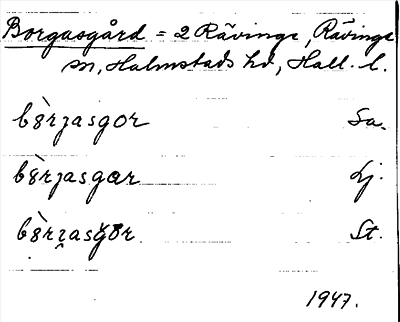 Borgasgård = 2 Rävinge, Rävinge
sn, Halmstads hd, Hall. l.
bòrjasgor Sa.
bòrjasgar Lj.
St.
1947.